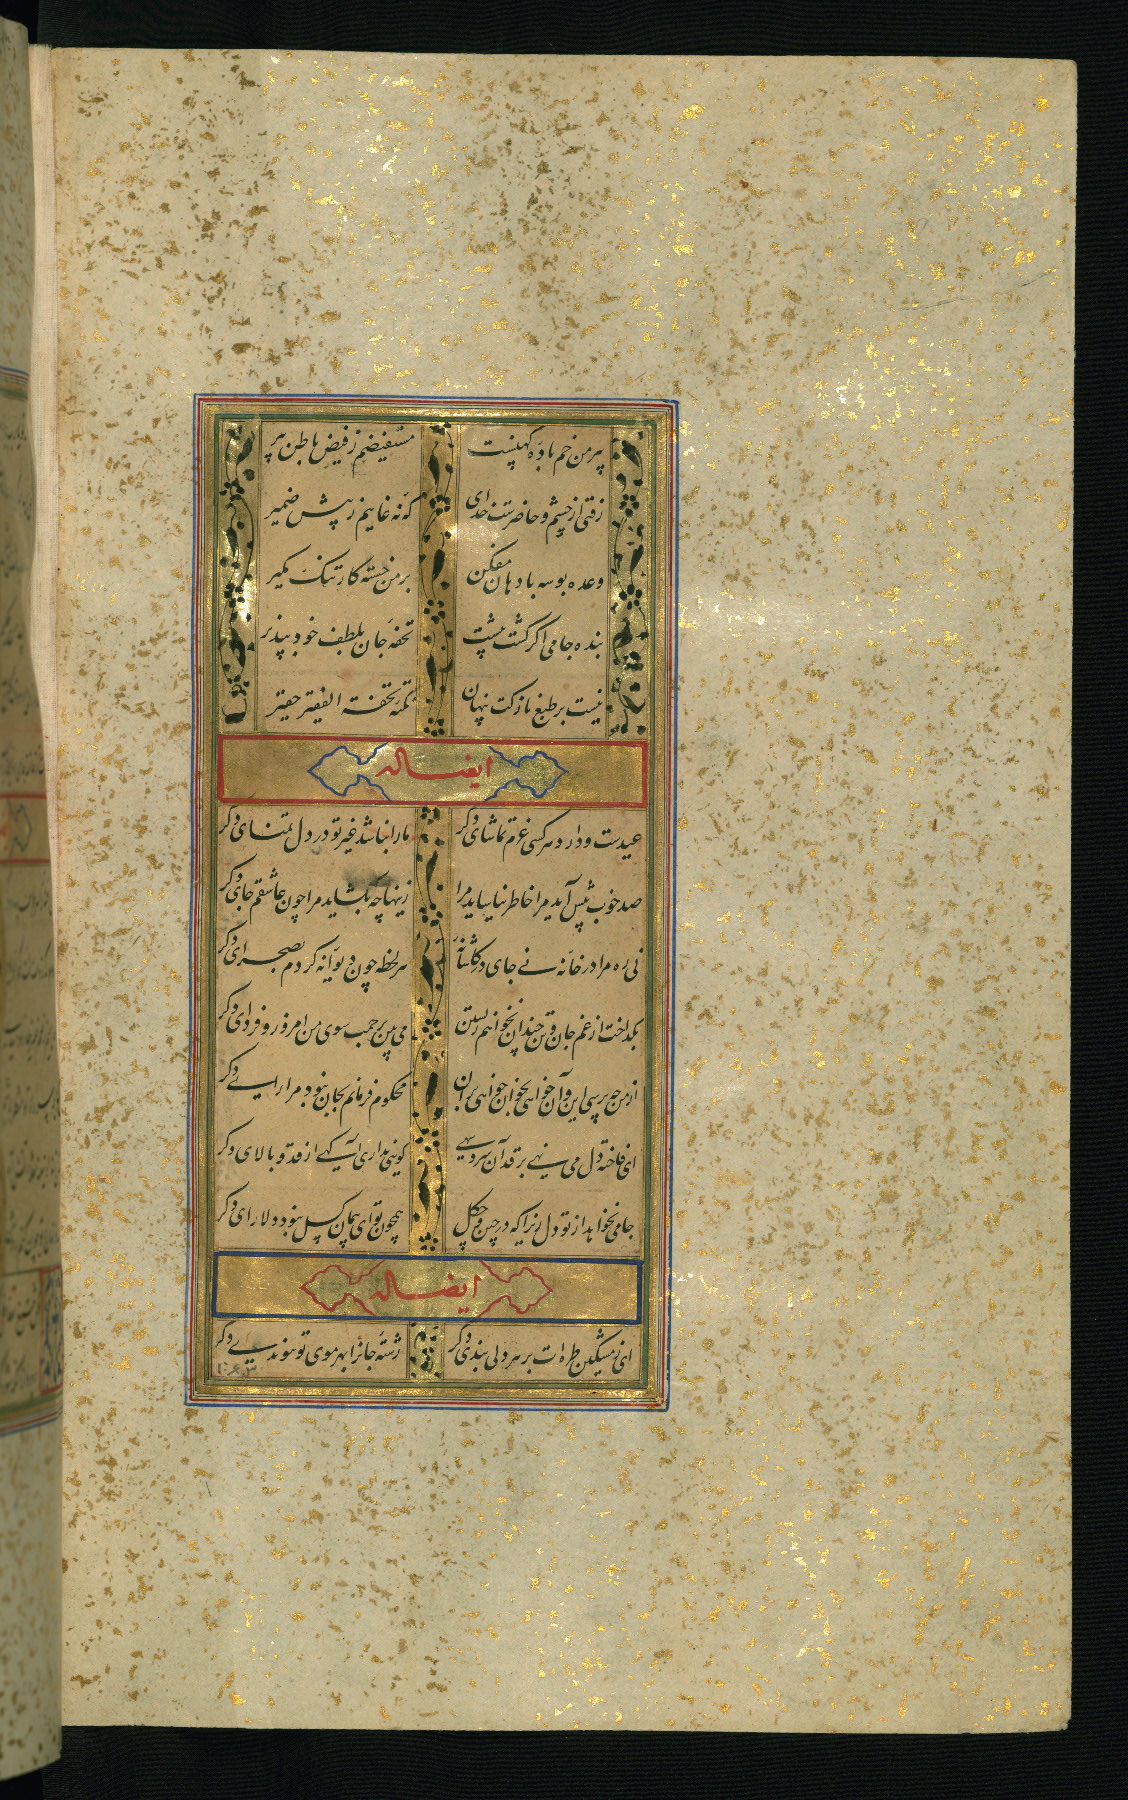 پیر من خم باده کهنست مستفیضم ز فیض باطن پیر
رفتی از چشم و حاضرست خدای که نه غایبم ز پیش ضمیر
وعده بوسه با دهان مفکن بر من خسته کار تنک مکیر
بنده جامی اکر کشت پیشت تحفه جان بلطف خود بپذیر
نیست بر طبع نازکت پنهان نکته تحفة الفقیر حقیر
ایضا له
عیدست و دارد هر کسی عزم تماشای دکر ما را نباشد غیر تو در دل تمنای دکر
صد خوب پیش آید مرا خاطر نیاساید مرا زینها چه بکشاید مرا چون عاشقم جای دکر
نی ره مرا در خانه نی جای در کاشانه هر لحظه چون دیوانه کردم بصحرای دکر
بکداخت از غم جان و تن چندان نخواهم زیستن می بین برحمت سوی من امروز و فردای دکر
از من چه پرسی این و آن خواهی بخوان خواهی بران محکوم فرمانم بجان نبود مرا رای دکر
ای فاخته دل می نهی بر قد آن سرو سهی کویی نداری آکهی از قد و بالای دکر
جامی نخواهد از تو دل زیرا که در چین و چکل همچون تو ای پیمان کسل نبود دلارای دکر
ایضا له
ای ز مشکین طره ات بر هر دلی بندی دکر رشته جانرا بهر موی تو پیوندی دکر